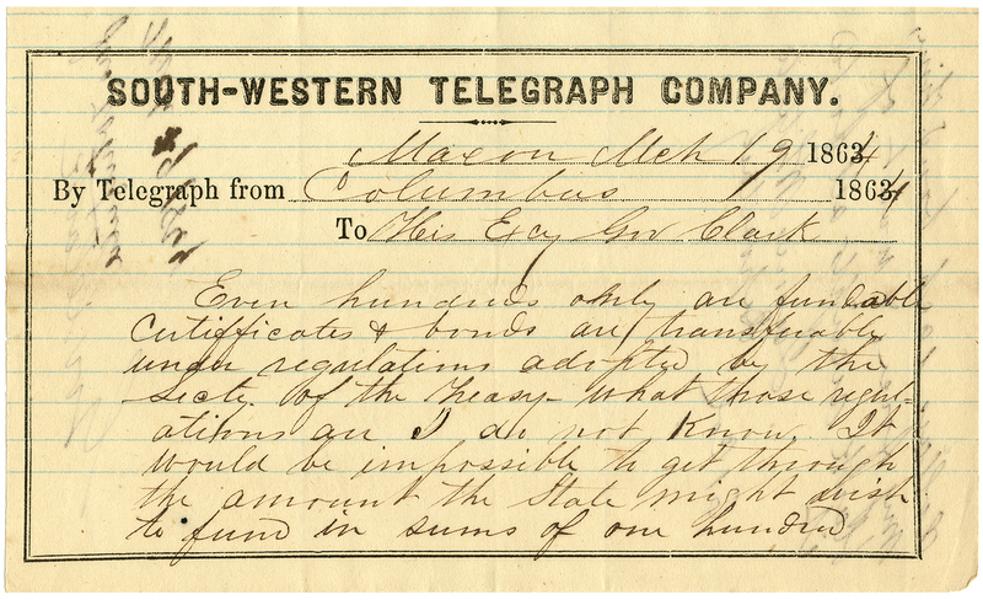 SOUTH-WESTERN TELEGRAPH COMPANY.
Macon Mch 19 1864
By Telegraph from Columbus 1864
To His Excy Gov Clark
Even hundreds only are fundable
Certifficates & bonds are transferable
under regulations adopted by the
Secty. of the Treasy - what those regul=
ations are I do not Know. It
would be impossible to get through
the amount the State might wish
to fund in sums of one hundred